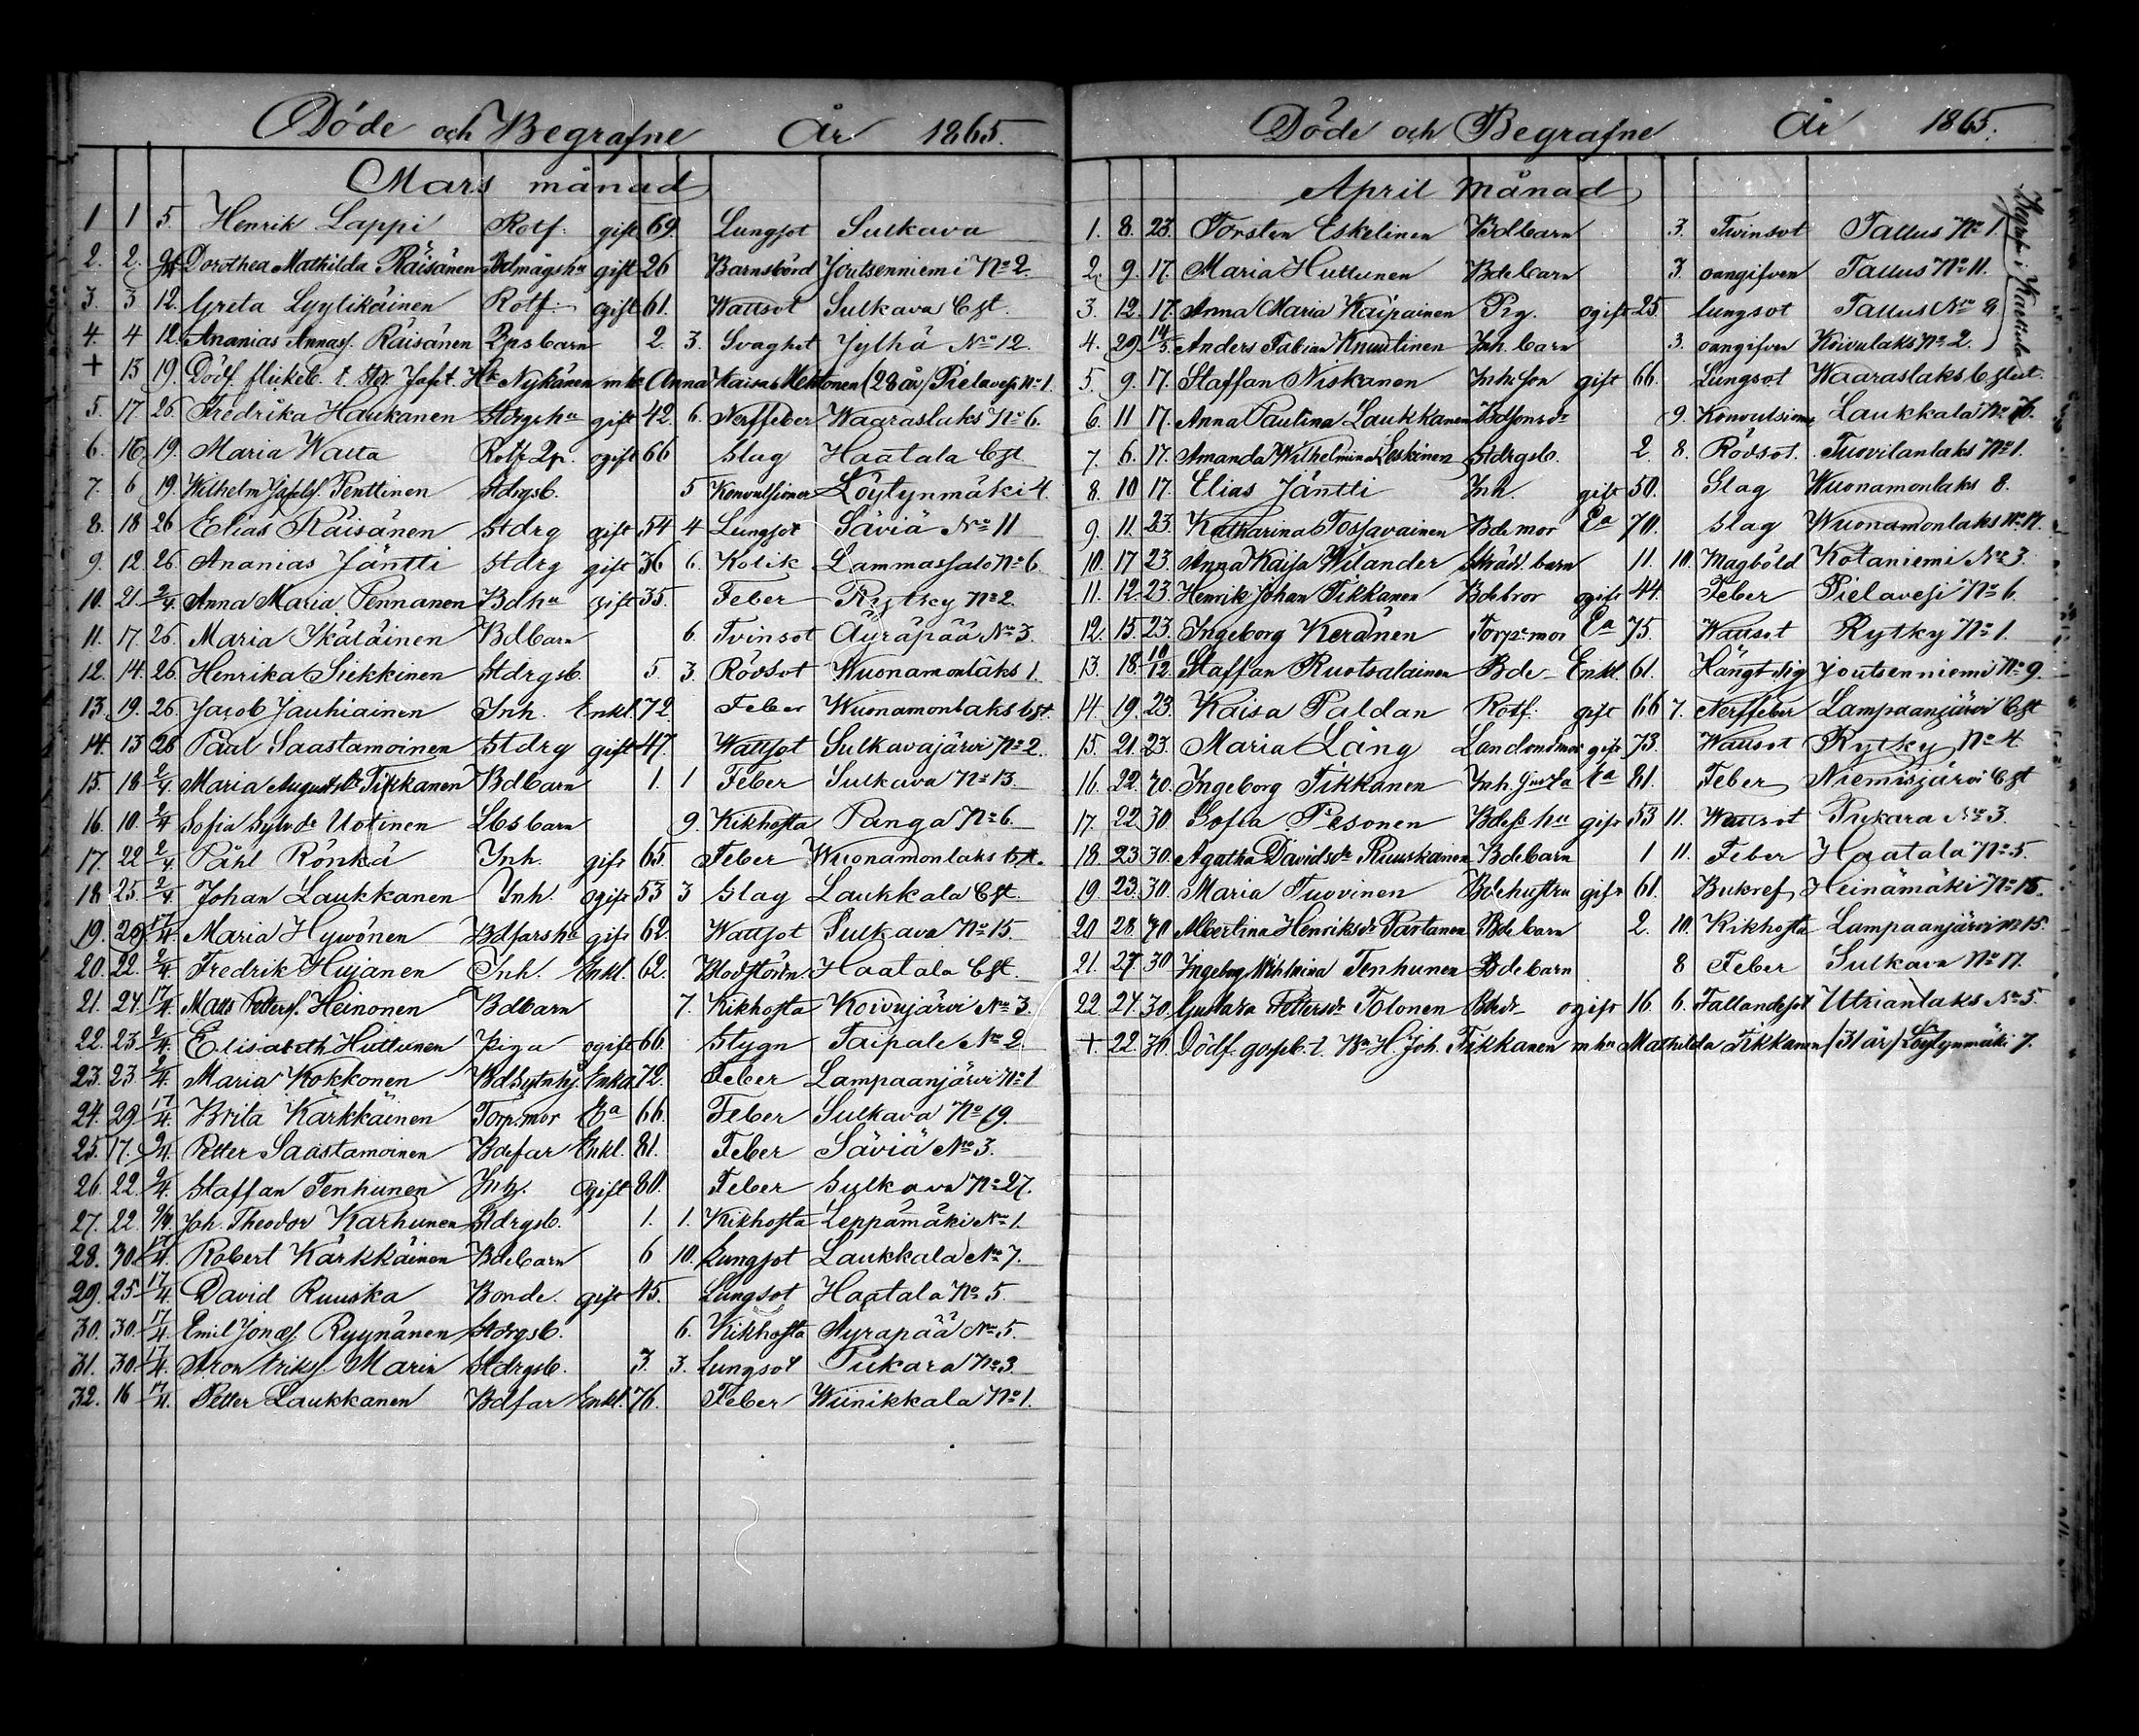 Döde och Begrafne År 1865.
Mars månad
1 1 5. Henrik Lappi Rotf. gift 69. Lungsot Sulkava
2. 2. Dorothea Mathilda Räisänen Bdmågshu gift 26 Barnsbörd Joutsenniemi No 2.
3. 3 12. Greta Lyytikäinen Rotf. ogift 61. Wattsot Sulkava Cst.
4. 4 12. Ananias Annass. Räisänen Qpsbarn 2. 3. Svaghet Jylhä No 12.
+ 13 19. Dödf. flickeb. t. Stdr. Jafet. Hk Nykänen m. h. Anna Kaisa Mektonen (28 år) Pielavesi No 1.
5. 17. 26. Fredrika Haukanen Stdrgshu gift 42. 6. Nerffeber Waaraslaks No 6.
6. 16. 19. Maria Watta Rotf. Qp. ogift 66 Slag Haatala Cst
7. 6 19. Wilhelm Jafetss. Penttinen Stdrgsb. 5 Konvulsioner Löytynmäki 4.
8. 18 26 Elias Räisänen Stdrg gift 54 4 Lungsot Säviä No 11
9. 12. 26. Ananias Jäntti Stdrg gift 36 6. Kolik Lammassalo No 6
10. 21. 2/4. Anna Maria Pennanen Bdhu gift 35. Feber Rytky No 2.
11. 17. 26. Maria Ikäläinen Bdbarn 6. Tvinsot Äyräpää No 3.
12. 14. 26. Henrika Sickkinen Stdrgsb. 5. 3. Rödsot Wuonamonlaks 1.
13. 19. 26. Jacob Jauhiainen Inh. Enkl. 72. Feber Wuonamonlaks Cst.
14. 13 26 Paul Saastamoinen Stdrg gift 47. Wattsot Sulkavajärvi No 2.
15. 18 2/4. Maria Augustsdr Tikkanen Bdbarn 1. 1 Feber Sulkava No 13.
16. 10. 2/4 Sofia Sylvdr Uotinen Lbsbarn 9. Kikhosta Panga No 6.
17. 22 2/4. Påhl Rönkä Inh. gift 65. Feber Wuonamonlaks Cst.
18 25. 2/4. Johan Laukkanen Inh. ogift 53 3 Slag Laukkala Cst.
19. 29 17/4. Maria Hywönen Bdfarshu gift 62. Wattsot Sulkava No 15.
20. 22. 2/4. Fredrik Hujanen Inh. Enkl. 62. Blodstörtn. Haatala Cst.
21. 24. 17/4. Matts Petterss. Heinonen Bdbarn 7. Kikhosta Koivujärvi No 3.
22. 23 2/4. Elisabeth Huttunen Piga ogift 66. Stygn Taipale No 2.
23. 23 2/4. Maria Kokkonen Bdsytnhj. Enka 72. Feber Lampaanjärvi No 1
24. 29 17/4. Brita Kärkkäinen Torp.mor Ea 66. Feber Sulkava No 19.
25. 17. 2/4. Petter Saastamoinen Bdefar Enkl. 81. Feber Säviä No 3.
26. 22. 2/4. Staffan Tenhunen Inh. Ogift 80. Feber Sulkava No 27.
27. 22. 2/4. Joh. Theodor Karhunen Stdrgsb. 1. 1. Kikhosta Leppämäki No 1.
28. 30. 17/4. Robert Kärkkäinen Bdebarn 6 10. Lungsot Laukkala No 7.
29. 25 17/4. David Ruuska Bonde. gift 45. Lungsot Haatala No 5.
30. 30. 17/4. Emil Jonass. Ryynänen Stdrgsb. 6. Kikhosta Äyräpää No 5.
31. 30. 17/4. Aron Erikss. Marin Stdrgsb. 3. 3. Lungsot Pukara No 3
32. 16 17/4. Petter Laukkanen Bdfar Enkl. 76. Feber Wiinikkala No 1.
Döde och Begrafne År 1865.
April månad
1. 8. 23. Torsten Eskelinen Bdbarn 3. Twinsot Tallus No 1.
2. 9. 17. Maria Huttunen Bdebarn 3. oangifven Tallus No 11.
3. 12. 17. Anna Maria Kaipainen Pig. ogift 25. lungsot Tallus No 9.
4. 29. 14/5. Anders Fabian Knuutinen Inh. barn 3. oangifven Koivulaks No 2.
Begraf. i Karttula
5. 9. 17. Staffan Niskanen Inh. son gift 66. Lungsot Waaraslaks Cst.
6. 11 17. Anna Paulina Laukkanen Bdsonsdr 9. Konvulsioner Laukkala No 16.
7. 6. 17. Amanda Wilhelmina Leskinen Stdrgsb. 2. 8. Rödsot. Tuovilanlaks No 1.
8. 10 17. Elias Jäntti Inh. gift 50. Slag Wuonamonlaks 8.
9. 11. 23. Katharina Tossavainen Bdemor Ea 70. Slag Wuonamonlaks No 17.
10. 17 23. Anna Kaisa Wilander Skräd. barn 11. 10. Magböld Kotaniemi No 3.
11. 12. 23. Henrik Johan Tikkanen Bdebror ogift 44. Feber Pielavesi No 6.
12. 15. 23. Ingeborg Keränen Torp.mor Ea 75. Wattsot Rytky No 1.
13. 18. 10/12 Staffan Ruotsalainen Bde Enkl. 61. Hängt sig Joutsenniemi No 9.
14. 19. 23. Kaisa Paldan Rotf. gift 66 7. Nerffeber Lampaanjärvi Cst
15. 21. 23. Maria Lång Landbondmor gift 73. Wattsot Rytky No 4.
16. 22. 30. Ingeborg Tikkanen Inh. Ea 81. Feber Niemisjärvi Cst
17. 22. 30 Sofia Pesonen Bdes hu gift 53 11. Wattsot Pukara No 3.
18. 23 30. Agatha Davidsdr Ruuskanen Bdebarn 1 11. Feber Haatala No 5.
19. 23. 30. Maria Tuovinen Bdehustru gift 61. Bukref Heinämäki No 15.
20 28. 30 Albertina Henriksdr Partanen Bdebarn 2. 10. Kikhosta Lampaanjärvi No 15.
21. 27 30 Ingeborg Wilhelmina Tenhunen Bdebarn 8 Feber Sulkava No 17.
22. 24. 30. Gustava Pettersdr Tolonen Bdedr ogift 16. 6. Fallandesot Utrianlaks No 5.
+. 22. 30. Dödf. gosseb. t. Bn H. Joh. Tikkanen m hu Mathilda Tikkanen (31 år) Löytynmäki 7.